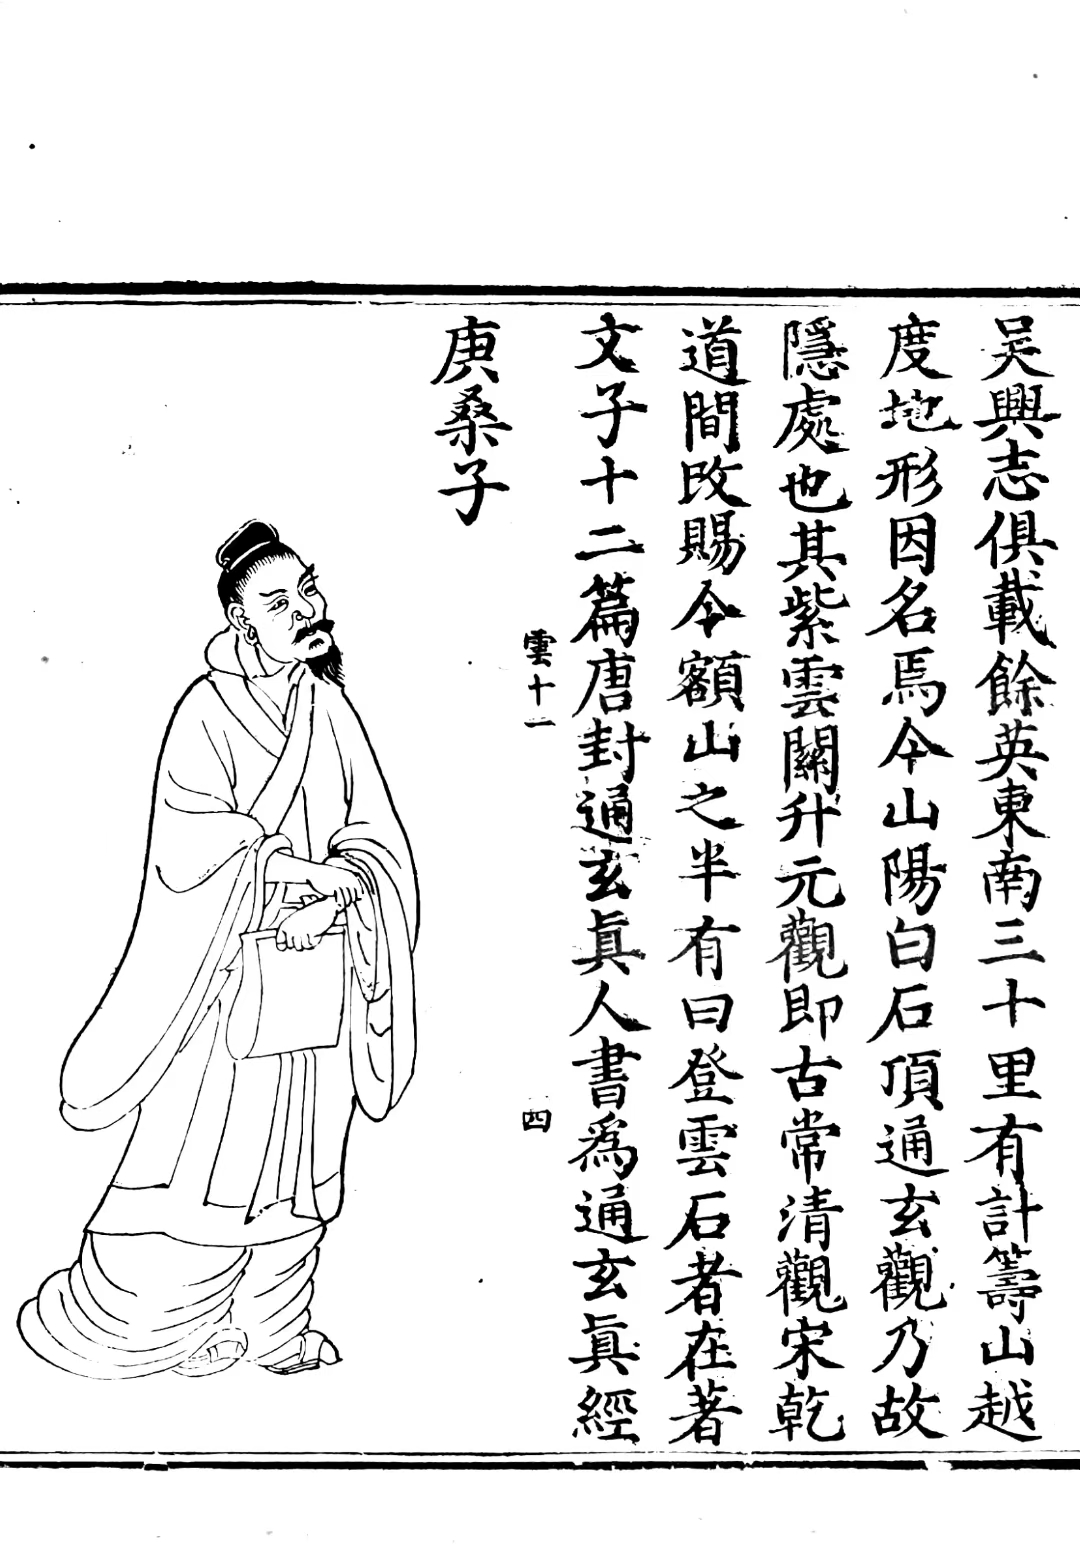 吳興志俱載餘英東南三十里有計籌山越
度地形因名焉今山陽白石頂通玄觀乃故
隱處也其紫雲關升元觀即古常清觀宋乾
道間改賜今額山之半有曰登雲石者在著
文子十二篇唐封通玄眞人書爲通玄眞經
雲十一
四
庚桑子